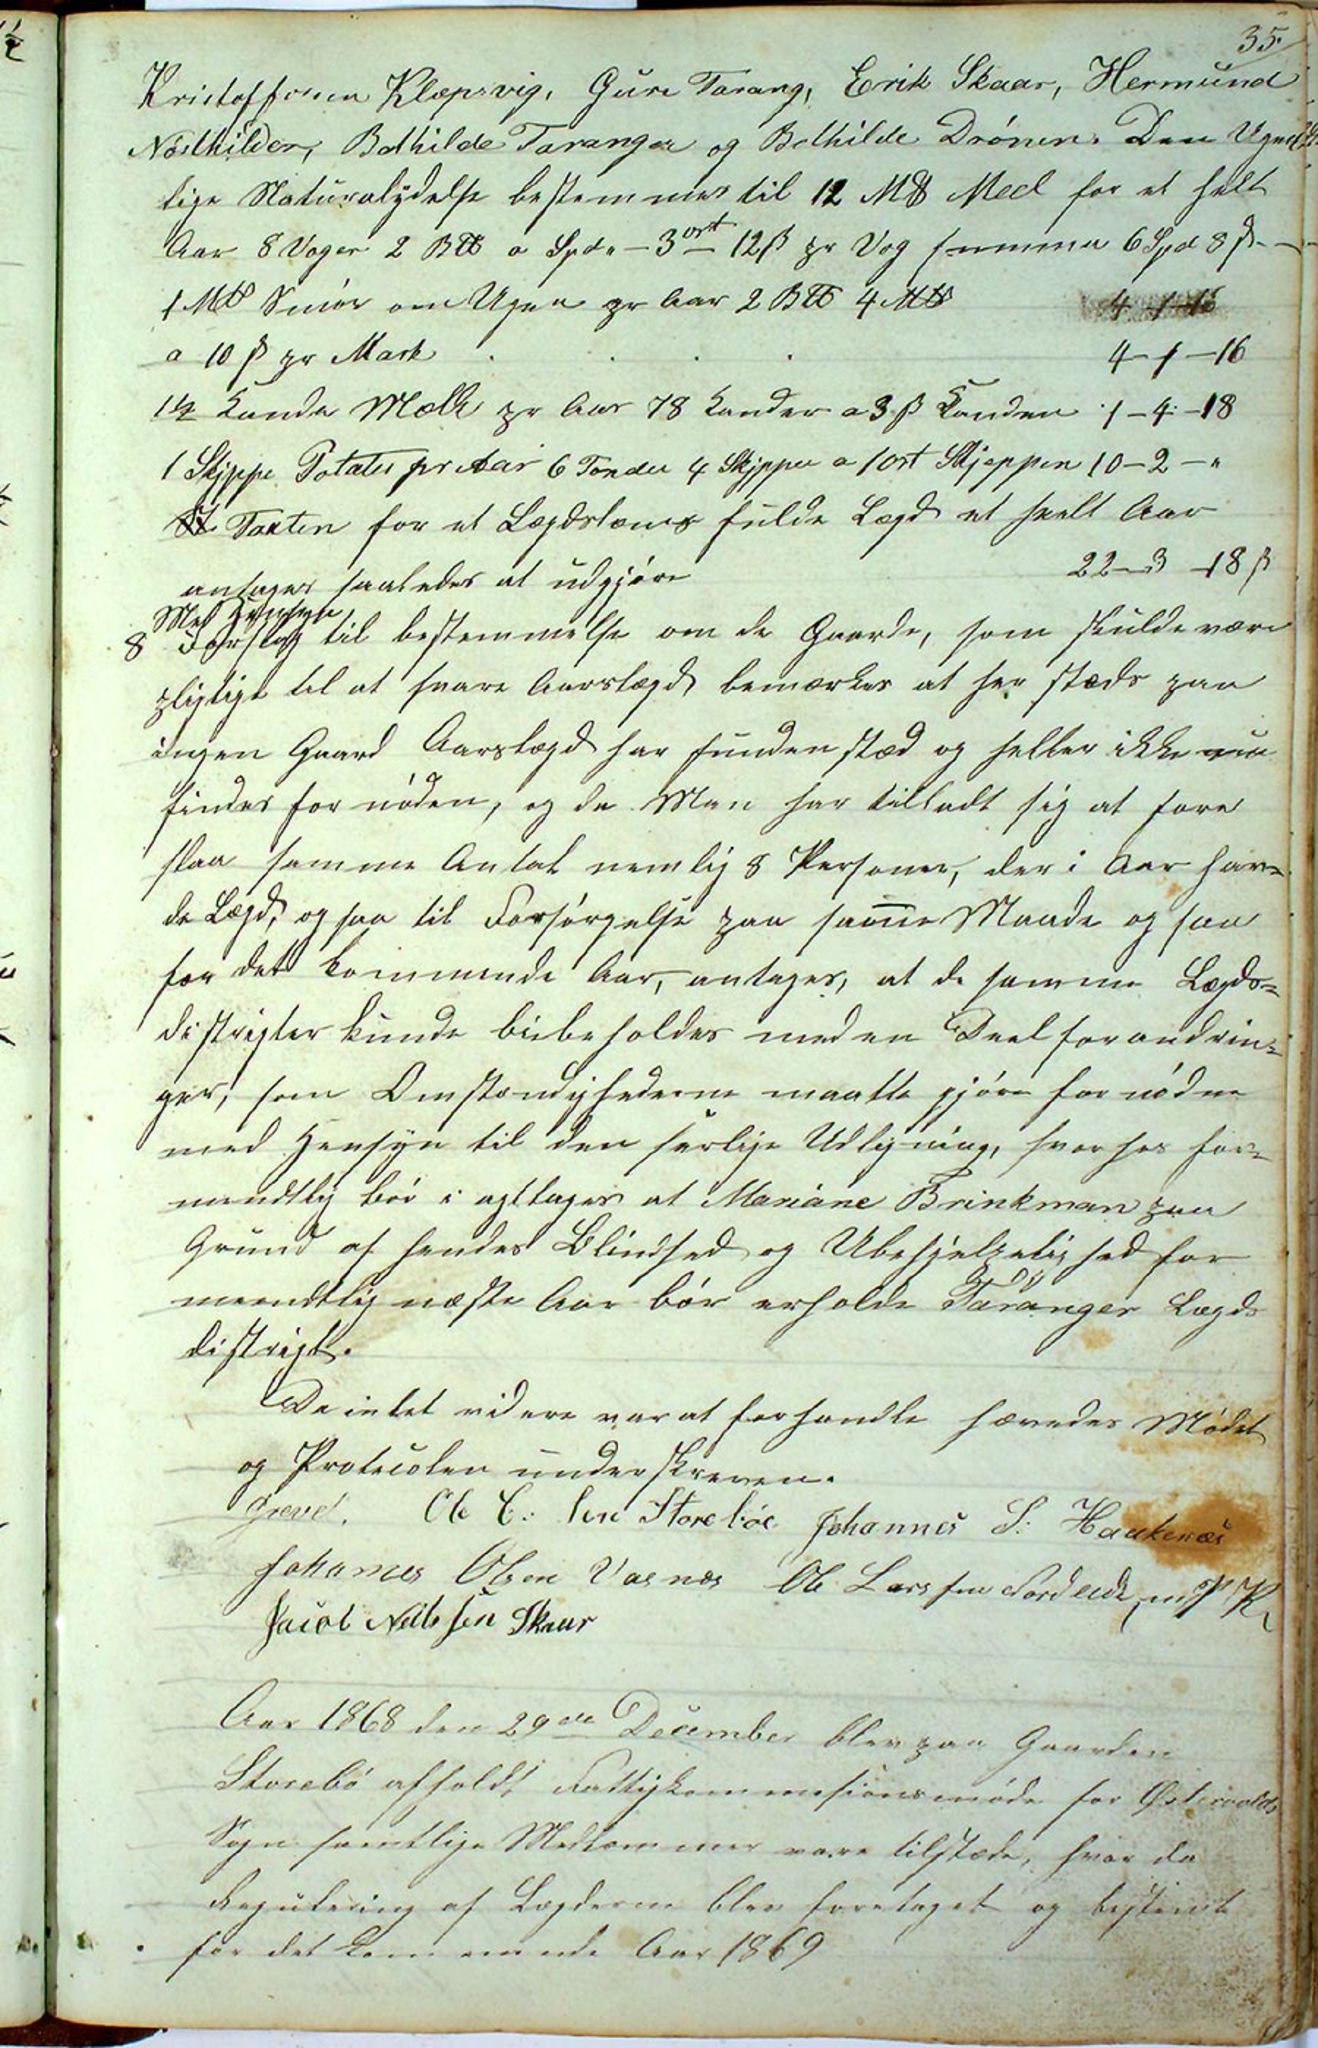 35.
Kristoffersen Klepsvig, Guri Tarang, Erik Skaar, Hermund
Nordhilder, Bothilde Taranger og Bothilde Drönen. Den Ugent-
lige Naturalydelse bestemmes til 12 M℔ Meel for et helt
Aar 8 Voger 2 B℔ a Spd. „ – 3 ort – 12 ß pr Vog summa 6 Spd 8 ß –
1 M℔ Smör om Ugen pr Aar 2 B℔ 4 M℔
a 10 ß pr Mark . . . 4 – 1 – 16
1½ Kande Mælk pr Aar 78 Kander a 3 ß Kanden 1 – 4 – 18
1 Skjeppe Potates pr Aar 6 Tönder 4 Skjepper a 1 ort Skjeppen 10 – 2 – „
Taxten for et Lægdslems fulde Lægd et heelt Aar
antages saaledes at udgjöre 22 – 3 – 18 ß
Med Hensyn
8 Forslag til bestemmelse om de Gaarde, som skulde være
pligtige til at svare Aarslægd, bemærkes at her steds paa
ingen Gaard Aarslægd har funden sted og heller ikke nu
findes fornöden, og da Man har tilladt sig at fore
slaa samme Antal nemlig 8 Personer, der i Aar hav-
de Lægd, ogsaa til Forsörgelse paa samme Maade ogsaa
for det kommende Aar, antages, at de samme Lægds-
distrigter kunde bibeholdes med en Deel forandrin-
ger, som Omstændighederne maatte gjöre fornödne
med Hensyn til den særlige Udligning, hvorhos for-
mendtlig bör iagttages at Mariane Brinkman paa
Grund af hendes Blindhed og Ubehjelpelighed for
meendtlig næste Aar bör erholde Taranger Lægds
distrigt.
Da intet videre var at forhandle hævedes Mödet
og Protocolen underskreven.
Greve. Ole C: sen Storeböe Johannes S: Haakenæs
Johannes Olsen Vasnæs Ole Larssen m P R
Jacob Neilssen Skaar
Aar 1868 den 29de December blev paa Gaarden
Storebö afholdt Fattigkommisionsmöde for Østervolds
Sogn samtlige Medlemmer vare tilstæde, hvor da
Regulering af Lægderne blev foretaget og bestemt
for det kommende Aar 1869